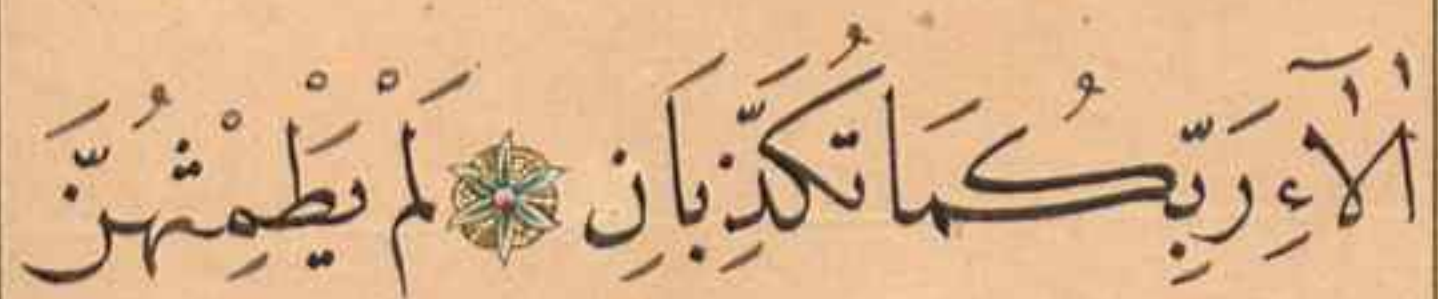 اٰلَآءِ رَبِّكُمَا تُكَذِّبَانِ ۝ لَمْ يَطْمِثْهُنَّ